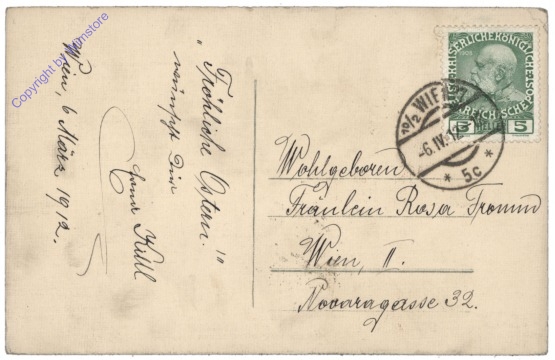 Wien, 6 März 1912.
„Fröhliche Ostern."
wünscht Dir
Wohlgeboren
Fräulein Rosa Fromm
Wien, II.
Novaragasse 32.
10/2 WIEN
-6.IV.12
* 5c *
KAISERLICHE KÖNIGLICHE
1908
5 HELLER 5
Copyright by